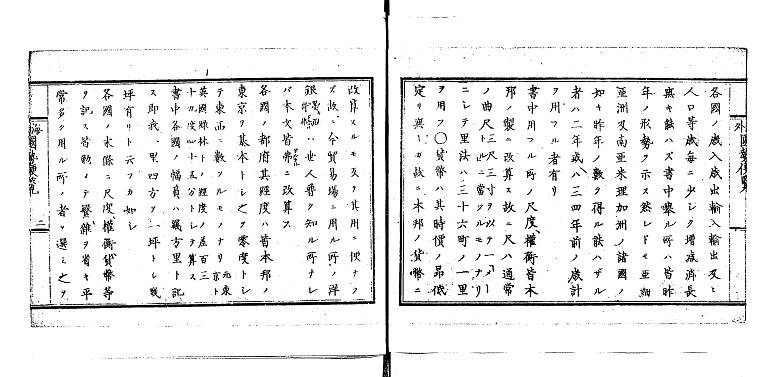 各國ノ歳入歳出輸入輸出及ヒ
人口等歳毎ニ少シク增減消長
無キ能ハス書中擧ル所ハ皆昨
年ノ形勢ヲ示ス然レドモ亞細
亞洲又南亞米理加洲ノ諸國ノ
如キ昨年ノ數ヲ得ル能ハザル
者ハ二年或ハ三四年前ノ歳計
ヲ用フル者有リ
書中用フル所ノ尺度權衡皆本
邦ノ製ニ改算ス故ニ尺ハ通常
ノ曲尺三尺三寸ヲ以テ一メー
トルニ當ツルモノナリ
ニシテ里法ハ三十六町ノ一里
ヲ用フ〇貨幣ハ其時價ノ昂低
定リ無シカ故ニ本邦ノ貨幣ニ
改算スルモ又タ其用ニ便ナラ
ズ故ニ今貿易場ニ用ル所ノ洋
銀ハ世人普ク知ル所ナレ
バ本文皆弗ニ改算ス
各國ノ都府其經度ハ皆本邦ノ
東京ヲ基本トシ之ヲ零度トシ
テ東西ニ數フルモノナリ
英國綠林トノ經度ノ差百三
十九度四十五分トシテ算ス
書中各國ノ幅員ハ幾方里ト記
ス即我一里四方ヲ一坪トシ幾
坪有リト云フカ如シ
各國ノ水條ニ尺度權衡貨幣等
ヲ記ス皆勉メテ繁雜ヲ省キ平
常多ク用ル所ノ者ヲ選ミ之ヲ
二